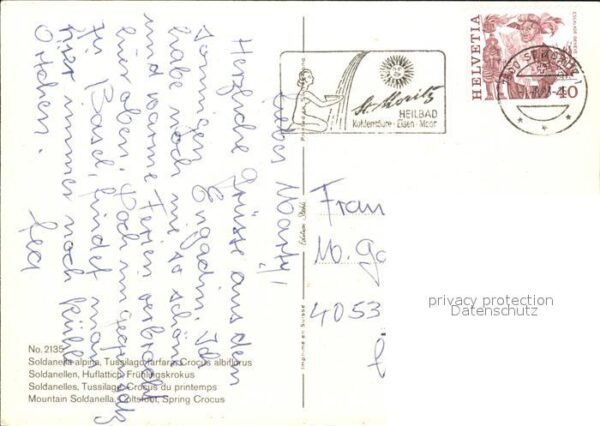 Lieber Marty,
Herzliche Grüsse aus dem
sonnigen Engadin. Ich
habe noch nie so schöne
und warme Ferien verbracht
hier oben. Doch im gegensatz
zu Basel, findet man
hier immer noch kühle
Örtchen.
Lea
No. 2135
Soldanella alpina, Tussilago farfara, Crocus albiflorus
Soldanellen, Huflattich, Frühlingskrokus
Soldanelles, Tussilage, Crocus du printemps
Mountain Soldanella, Coltsfoot, Spring Crocus
Imprimé en Suisse
St. Moritz
HEILBAD
Kohlensäure - Eisen - Moor
HELVETIA
40
Frau
M. Ga
4053
privacy protection
Datenschutz